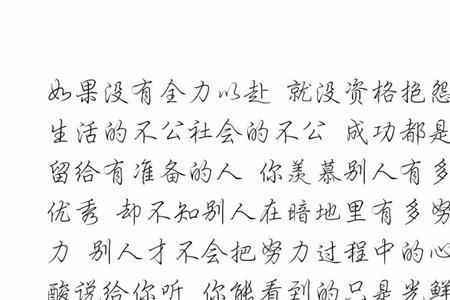 如果没有全力以赴 就没资格抱怨
生活的不公社会的不公 成功都是
留给有准备的人 你羡慕别人有多
优秀 却不知别人在暗地里有多努
力 别人才不会把努力过程中的心
酸说给你听 你能看到的只是光鲜